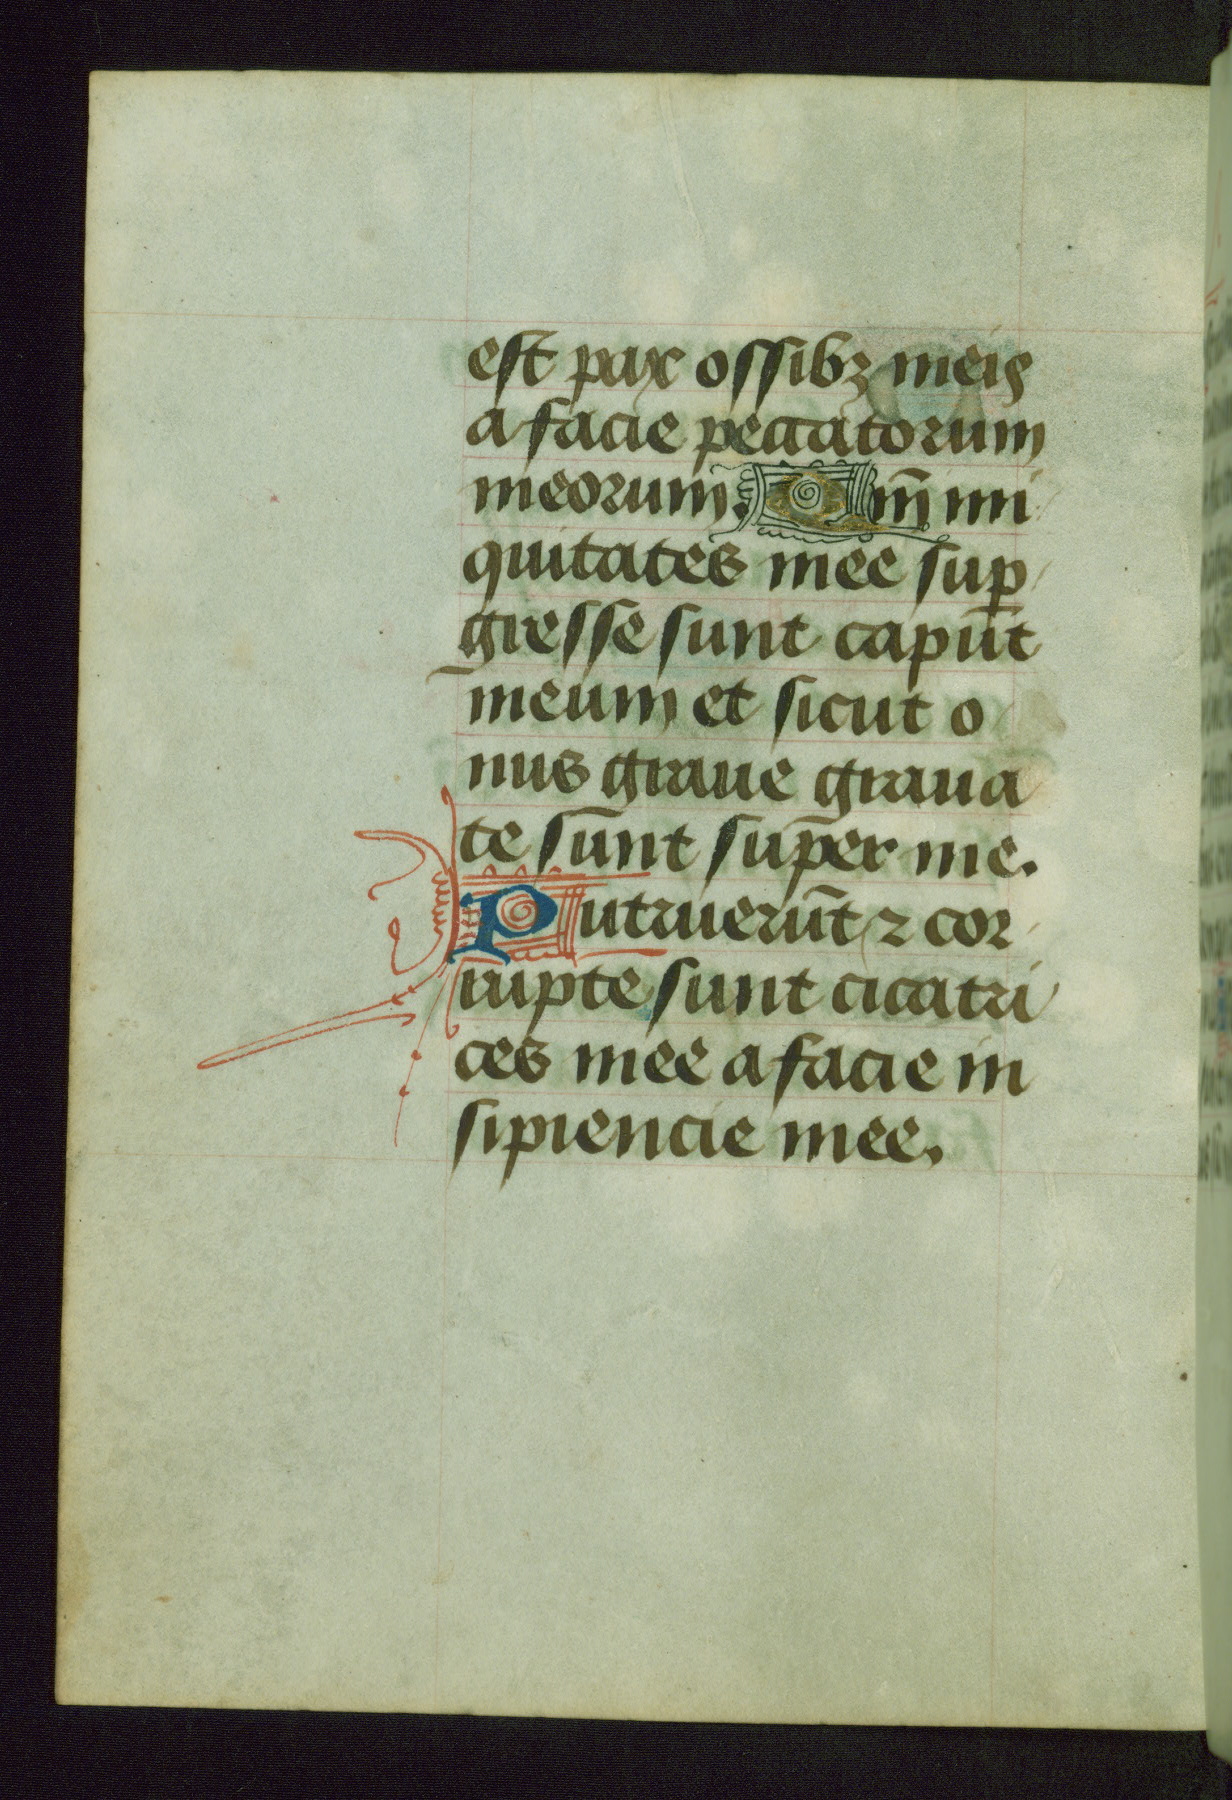 est pax ossibꝫ meis
a facie peccatorum
meorum. Qm̄ ini
quitates mee suꝑ
gresse sunt capūt
meum et sicut o
nus graue graua
te sūnt sup̄er me.
Putruerūt ⁊ cor
rupte sunt cicatri
ces mee a facie in
sipiencie mee.